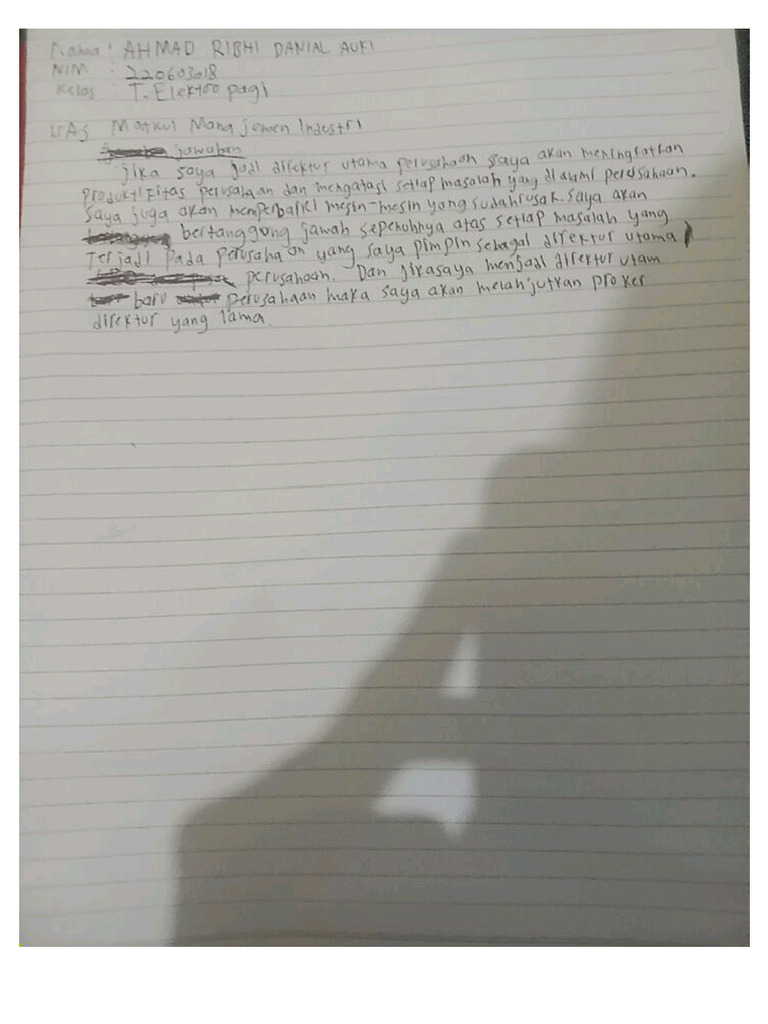 Nama : AHMAD RIBHI DANIAL AUFI
NIM : 220603018
Kelas : T. Elektro pagi
UAS Matkul Manajemen Industri
jawaban
jika saya jadi direktur utama perusahaan saya akan meningkatkan
produktifitas perusahaan dan mengatasi setiap masalah yang dialami perusahaan.
Saya juga akan memperbaiki mesin-mesin yang sudah rusak. Saya akan
bertanggung jawab sepenuhnya atas setiap masalah yang
Terjadi pada perusahaan yang saya pimpin sebagai direktur utama
perusahaan. Dan jika saya menjadi direktur utam
baru perusahaan maka saya akan melanjutkan proker
direktur yang lama.